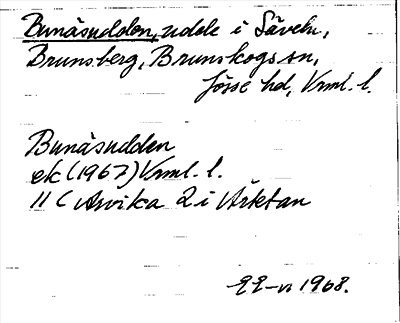 Bunäsudden, udde i Säveln,
Brunsberg, Brunskogs sn,
Jösse hd, Vrml. l.
Bunäsudden
ek (1967) Vrml. l.
11 C Arvika 2 i Årktan
1968.